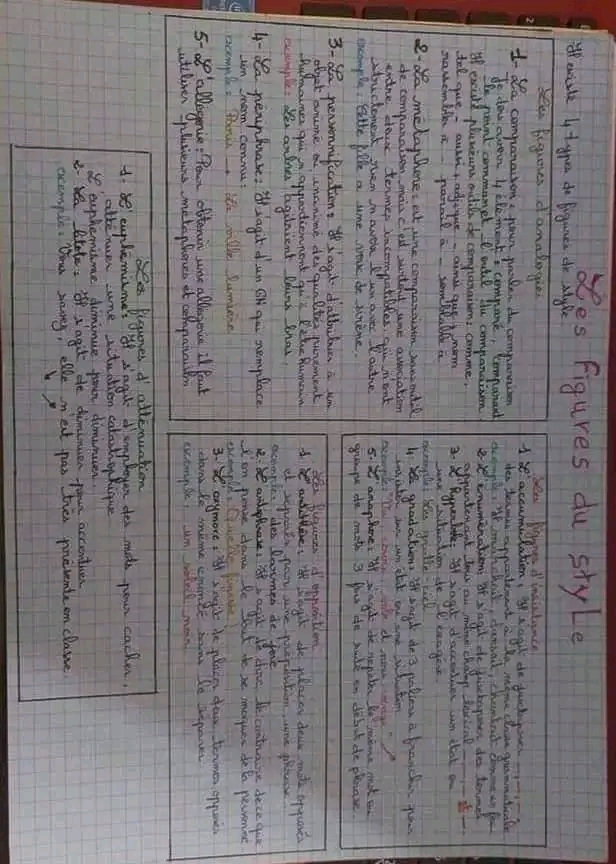 Les figures du style
Il existe 4 types de figures de style
Les figures d'analogies
1- La comparaison : pour parler de comparaison
Je dois avoir 4 élément : comparé, comparant
le point commun et l'outil du comparaison
Il existe plusieurs outils de comparaison : comme,
tel que, aussi + adj + que - ainsi que + nom
ressemble à - pareil à - semblable à
2- La métaphore : est une comparaison sans outil
de comparaison mais c'est surtout une association
entre deux termes incompatibles qui n'ont
strictement rien n'avoir l'un avec l'autre
exemple : Cette fille a une voix de sirène.
3- La personnification : Il s'agit d'attribuer à un
objet animé ou inanimé des qualités purement
humaines qui n'appartiennent qu'à l'être humain
exemple : Les arbres agitaient leurs bras.
4- La périphrase : Il s'agit d'un GN qui remplace
un nom connu :
exemple : Paris → La ville lumière
5- L'allégorie : Pour obtenir une allégorie il faut
utiliser plusieurs métaphores et comparaison
Les figures d'insistance
1. L'accumulation : Il s'agit de juxtaposer
des termes appartenant à la même classe grammaticale
exemple : Il marchait, dansait, chantait comme un fou
2. L'énumération : Il s'agit de juxtaposer des termes
appartenant tous au même champ lexical
3. L'hyperbole : Il s'agit d'accentuer un état ou
une situation de l'exagérer
exemple : Les gratte-ciel
4. La gradation : Il s'agit de 3 paliers à franchir pour
insister sur un état ou une situation
exemple : "Je cours, vole et nous venge"
5. L'anaphore : Il s'agit de répéter le même mot ou
groupe de mots 3 fois de suite en début de phrase
Les figures d'atténuation
1. L'euphémisme : Il s'agit d'employer des mots pour cacher,
atténuer une situation catastrophique
L'euphémisme diminue pour diminuer
2- La litote : Il s'agit de diminuer pour accentuer
exemple : Vous savez, elle n'est pas très présente en classe
Les figures d'opposition
1. L'antithèse : Il s'agit de placer deux mots opposés
et séparés par une préposition, une phrase
exemple : des larmes de joie
2. L'antiphrase : Il s'agit de dire le contraire de ce que
l'on pense dans le but de se moquer de la personne
exemple : Quelle finesse !
3. L'oxymore : Il s'agit de placer deux termes opposés
dans le même congé sans le séparer
exemple : un soleil noir